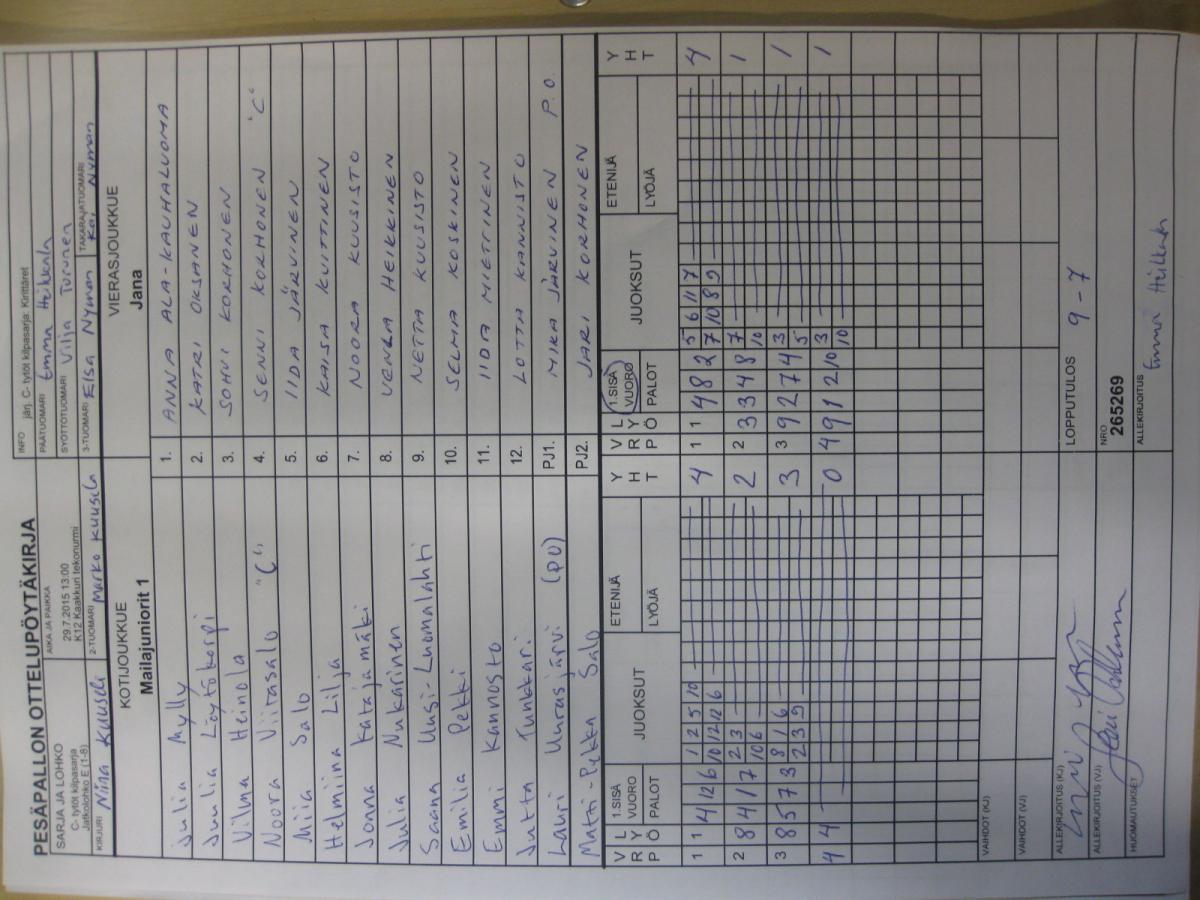 PESÄPALLON OTTELUPÖYTÄKIRJA
SARJA JA LOHKO
C- tytöt kilpasarja
Jatkolohko E (1-8)
AIKA JA PAIKKA
29.7.2015 13:00
K12 Kaakkuri tekonurmi
INFO järj. C- tytöt kilpasarja: Kirittäret
PÄÄTUOMARI Emma Heikkala
SYÖTTÖTUOMARI Vilja Turunen
KIRJURI Nina Kuusela
2-TUOMARI Marko Kuusela
3-TUOMARI Elsa Nyman
TAKARAJATUOMARI Kai Nyman
KOTIJOUKKUE
Mailajuniorit 1
VIERASJOUKKUE
Jana
Julia Mylly 1. ANNA ALA-KAUHALUOMA
Juulia Löytökorpi 2. KATRI OKSANEN
Vilma Heinola 3. SOHVI KORHONEN
Noora Viitasalo "C" 4. SENNI KORHONEN "C"
Miia Salo 5. IIDA JÄRVINEN
Helmiina Lilja 6. KAISA KUITTINEN
Jonna Katajamäki 7. NOORA KUUSISTO
Julia Nukarinen 8. VENLA HEIKKINEN
Saana Uusi-Luomalahti 9. NETTA KUUSISTO
Emilia Pekki 10. SELMA KOSKINEN
Emmi Kannosto 11. IIDA MIETTINEN
Jutta Tunkkari 12. LOTTA KANNISTO
Lauri Uurasjärvi (PU) PJ1. MIKA JÄRVINEN P.O.
Mati-Pekka Salo PJ2. JARI KORHONEN
V R P L Y Ö 1.SISÄ VUORO PALOT JUOKSUT ETENIJÄ LYÖJÄ Y H T
V R P L Y Ö 1.SISÄ VUORO PALOT JUOKSUT ETENIJÄ LYÖJÄ Y H T
1 1 4 12 6 1 2 5 10 4 1 1 4 8 2 5 6 11 7 4
10 12 12 6 7 10 8 9
2 8 4 1 7 2 3 2 2 3 3 4 8 7 1
10 6 10
3 8 5 7 3 8 1 6 3 3 9 2 7 4 3 1
2 3 9 5
4 4 0 4 9 1 2 10 3 1
10
VAIHDOT (KJ)
VAIHDOT (VJ)
ALLEKIRJOITUS (KJ)
LOPPUTULOS 9-7
ALLEKIRJOITUS (VJ)
NRO
265269
HUOMAUTUKSET
ALLEKIRJOITUS
Emma Heikkala